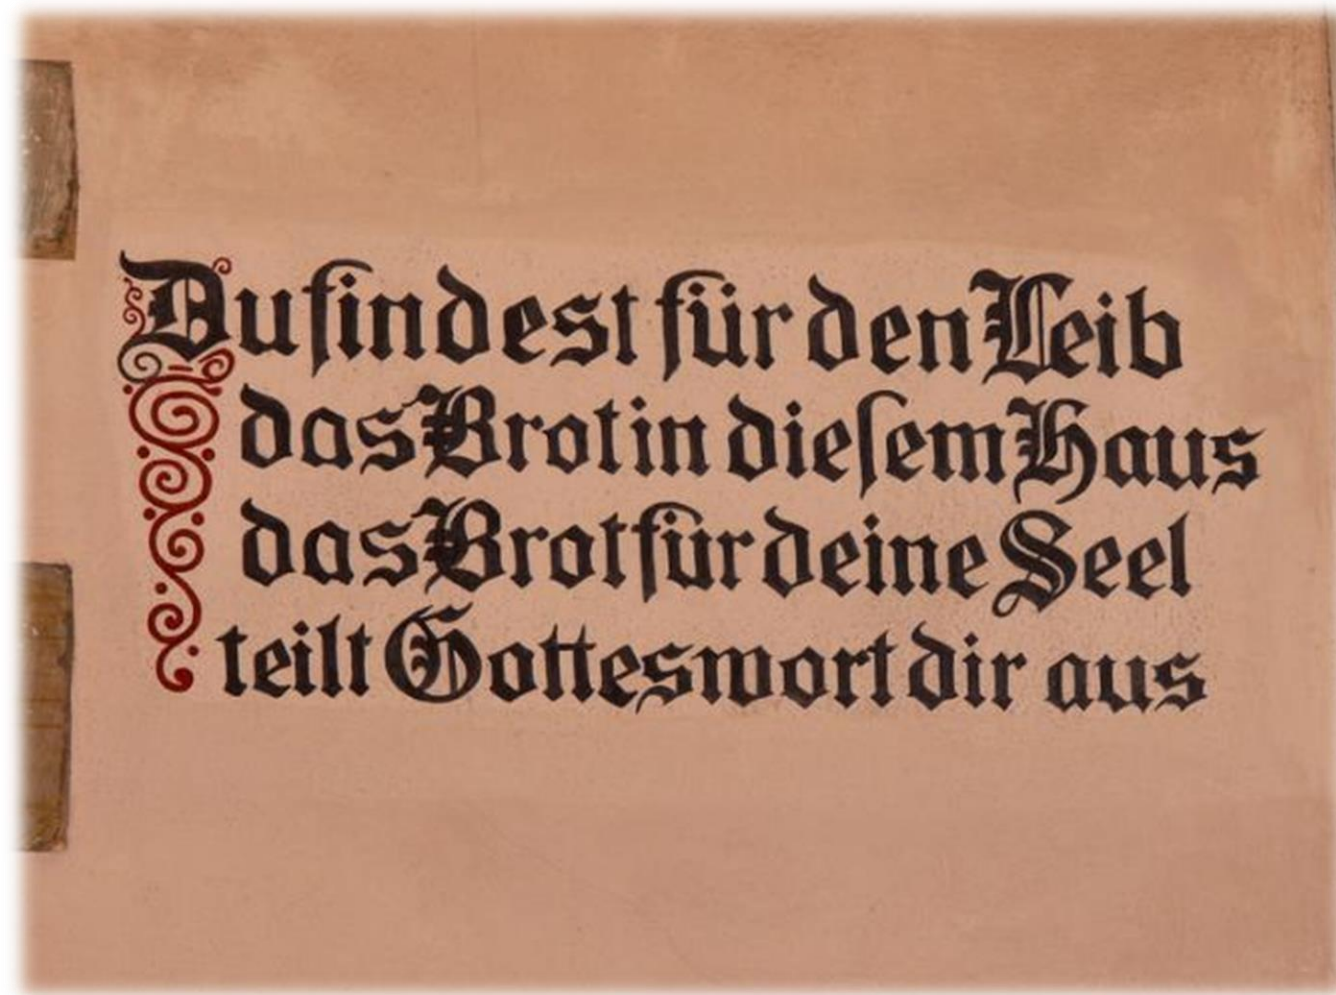 Du findest für den Leib
das Brot in dieſem Haus
das Brot für deine Seel
teilt Gotteswort dir aus